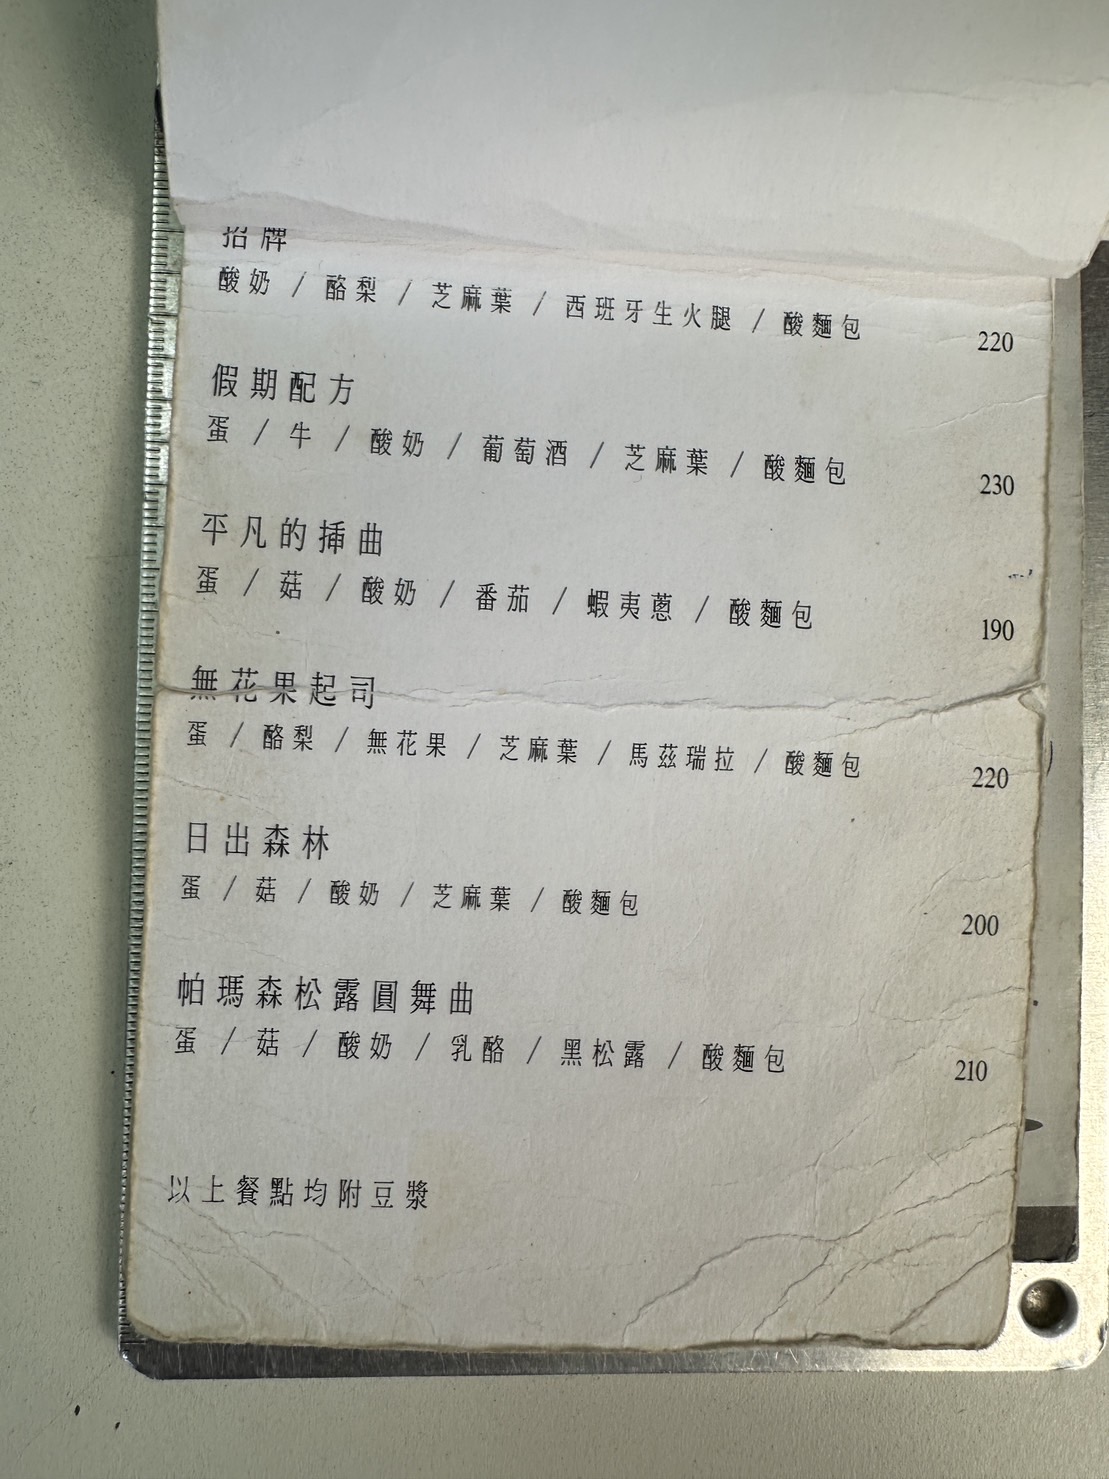 招牌
酸奶 / 酪梨 / 芝麻葉 / 西班牙生火腿 / 酸麵包 220
假期配方
蛋 / 牛 / 酸奶 / 葡萄酒 / 芝麻葉 / 酸麵包 230
平凡的挿曲
蛋 / 菇 / 酸奶 / 番茄 / 蝦夷蔥 / 酸麵包 190
無花果起司
蛋 / 酪梨 / 無花果 / 芝麻葉 / 馬茲瑞拉 / 酸麵包 220
日出森林
蛋 / 菇 / 酸奶 / 芝麻葉 / 酸麵包 200
帕瑪森松露圓舞曲
蛋 / 菇 / 酸奶 / 乳酪 / 黑松露 / 酸麵包 210
以上餐點均附豆漿